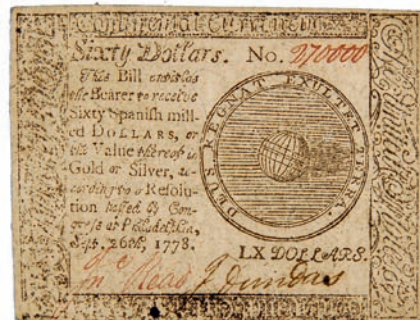 Continental Currency
Sixty Dollars. No. 270000
This Bill entitles
the Bearer to receive
Sixty Spanish mill-
ed DOLLARS, or
the Value thereof in
Gold or Silver, ac-
cording to a Resolu-
tion passed by Con-
gress at Philadelphia,
Sept. 26th, 1778.
DEUS REGNAT EXULTET TERRA.
LX DOLLARS.
J Dundas